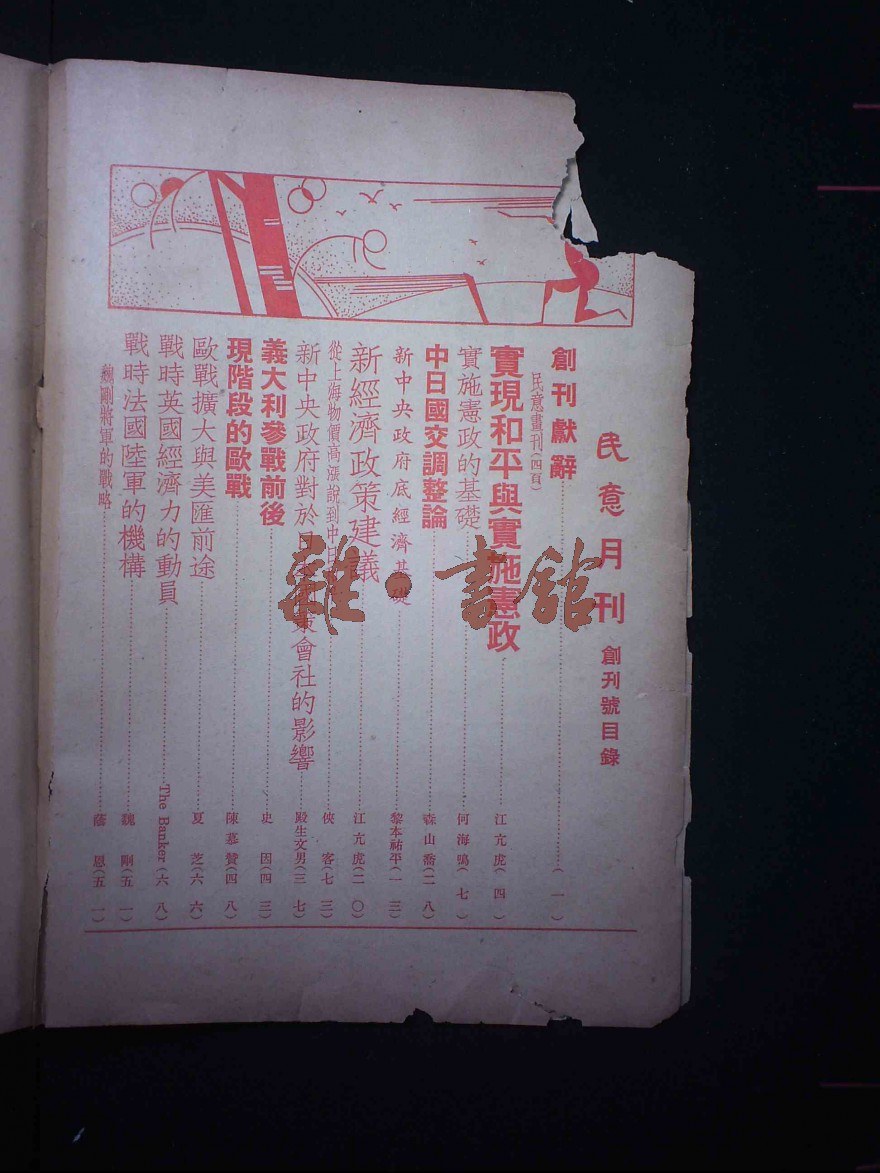 民意月刊 創刊號目錄
創刊獻辭……(一)
民意畫刊(四頁)
實現和平與實施憲政……江亢虎(四)
實施憲政的基礎……何海鳴(七)
中日國交調整論……森山喬(二八)
新中央政府底經濟基礎……黎本祐平(一三)
新經濟政策建議……江亢虎(二〇)
從上海物價高漲說到中日……俠客(七三)
新中央政府對於日本國策會社的影響……殿生文男(三七)
義大利參戰前後……史因(四三)
現階段的歐戰……陳慕贊(四八)
歐戰擴大與美匯前途……夏芝(六六)
戰時英國經濟力的動員……The Banker(六八)
戰時法國陸軍的機構……魏剛(五一)
魏剛將軍的戰略……蔭恩(五一)
雜·書館